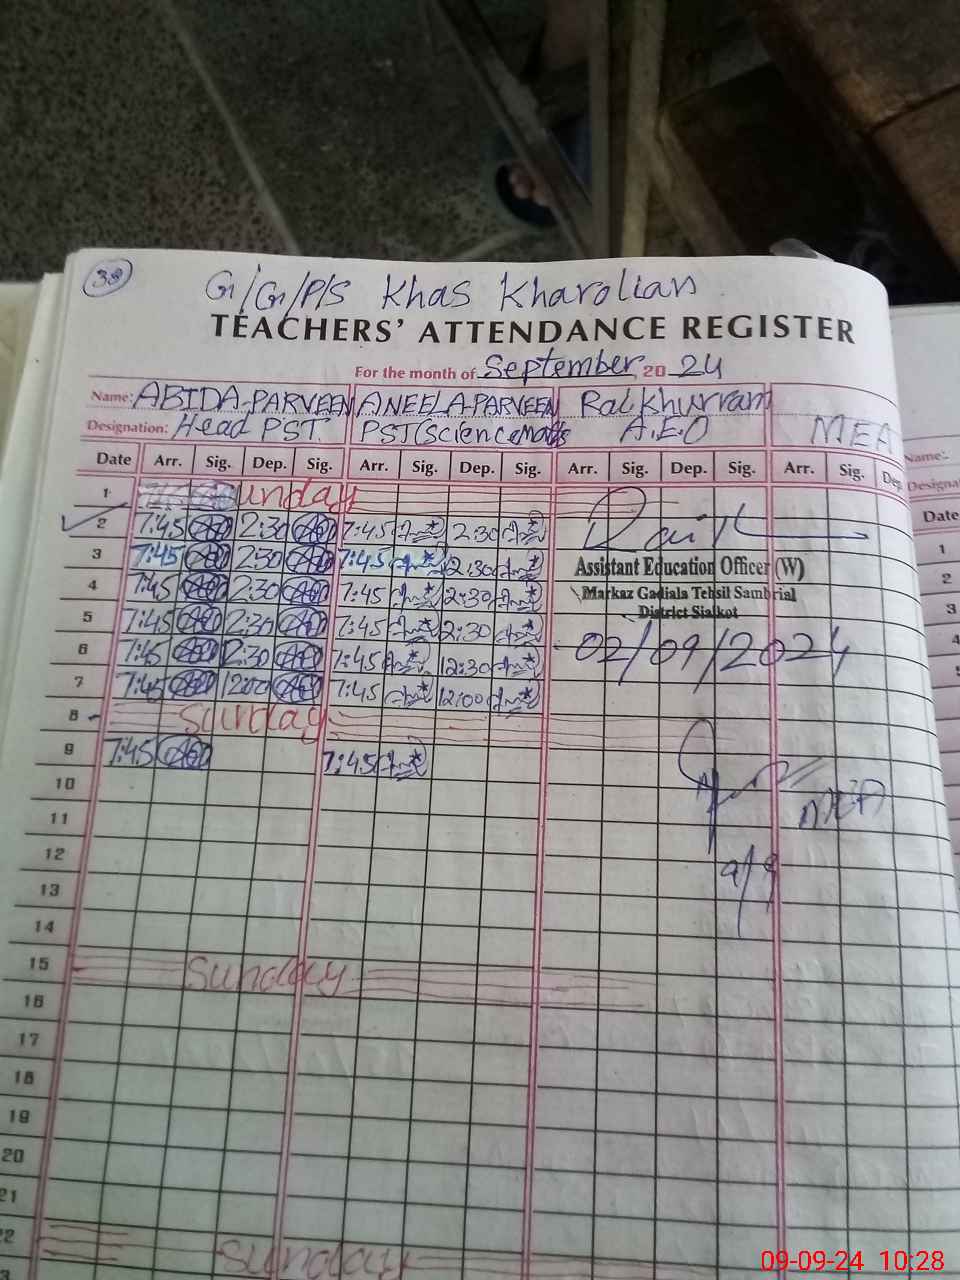 38
G/G/P/S Khas Kharolian
TEACHERS' ATTENDANCE REGISTER
For the month of September 20 24
Name: ABIDA PARVEEN ANEELA PARVEEN Rai Khurram
Designation: Head PST. PST(Science Maths A.E.O MEA
Name:
Designa
Date Arr. Sig. Dep. Sig. Arr. Sig. Dep. Sig. Arr. Sig. Dep. Sig. Arr. Sig. Dep.
Date
1 Sunday
2 7:45 2:30 7:45 2:30
3 7:45 2:30 7:45 2:30
4 7:45 2:30 7:45 2:30
5 7:45 2:30 7:45 2:30
6 7:45 12:30 7:45 12:30
7 7:45 12:00 7:45 12:00
8 Sunday
9 7:45 7:45
Assistant Education Officer (W)
Markaz Gadiala Tehsil Sambrial
District Sialkot
02/09/2024
MEA
9/9
10
11
12
13
14
15 Sunday
16
17
18
19
20
21
22 Sunday
1
2
3
4
09-09-24 10:28